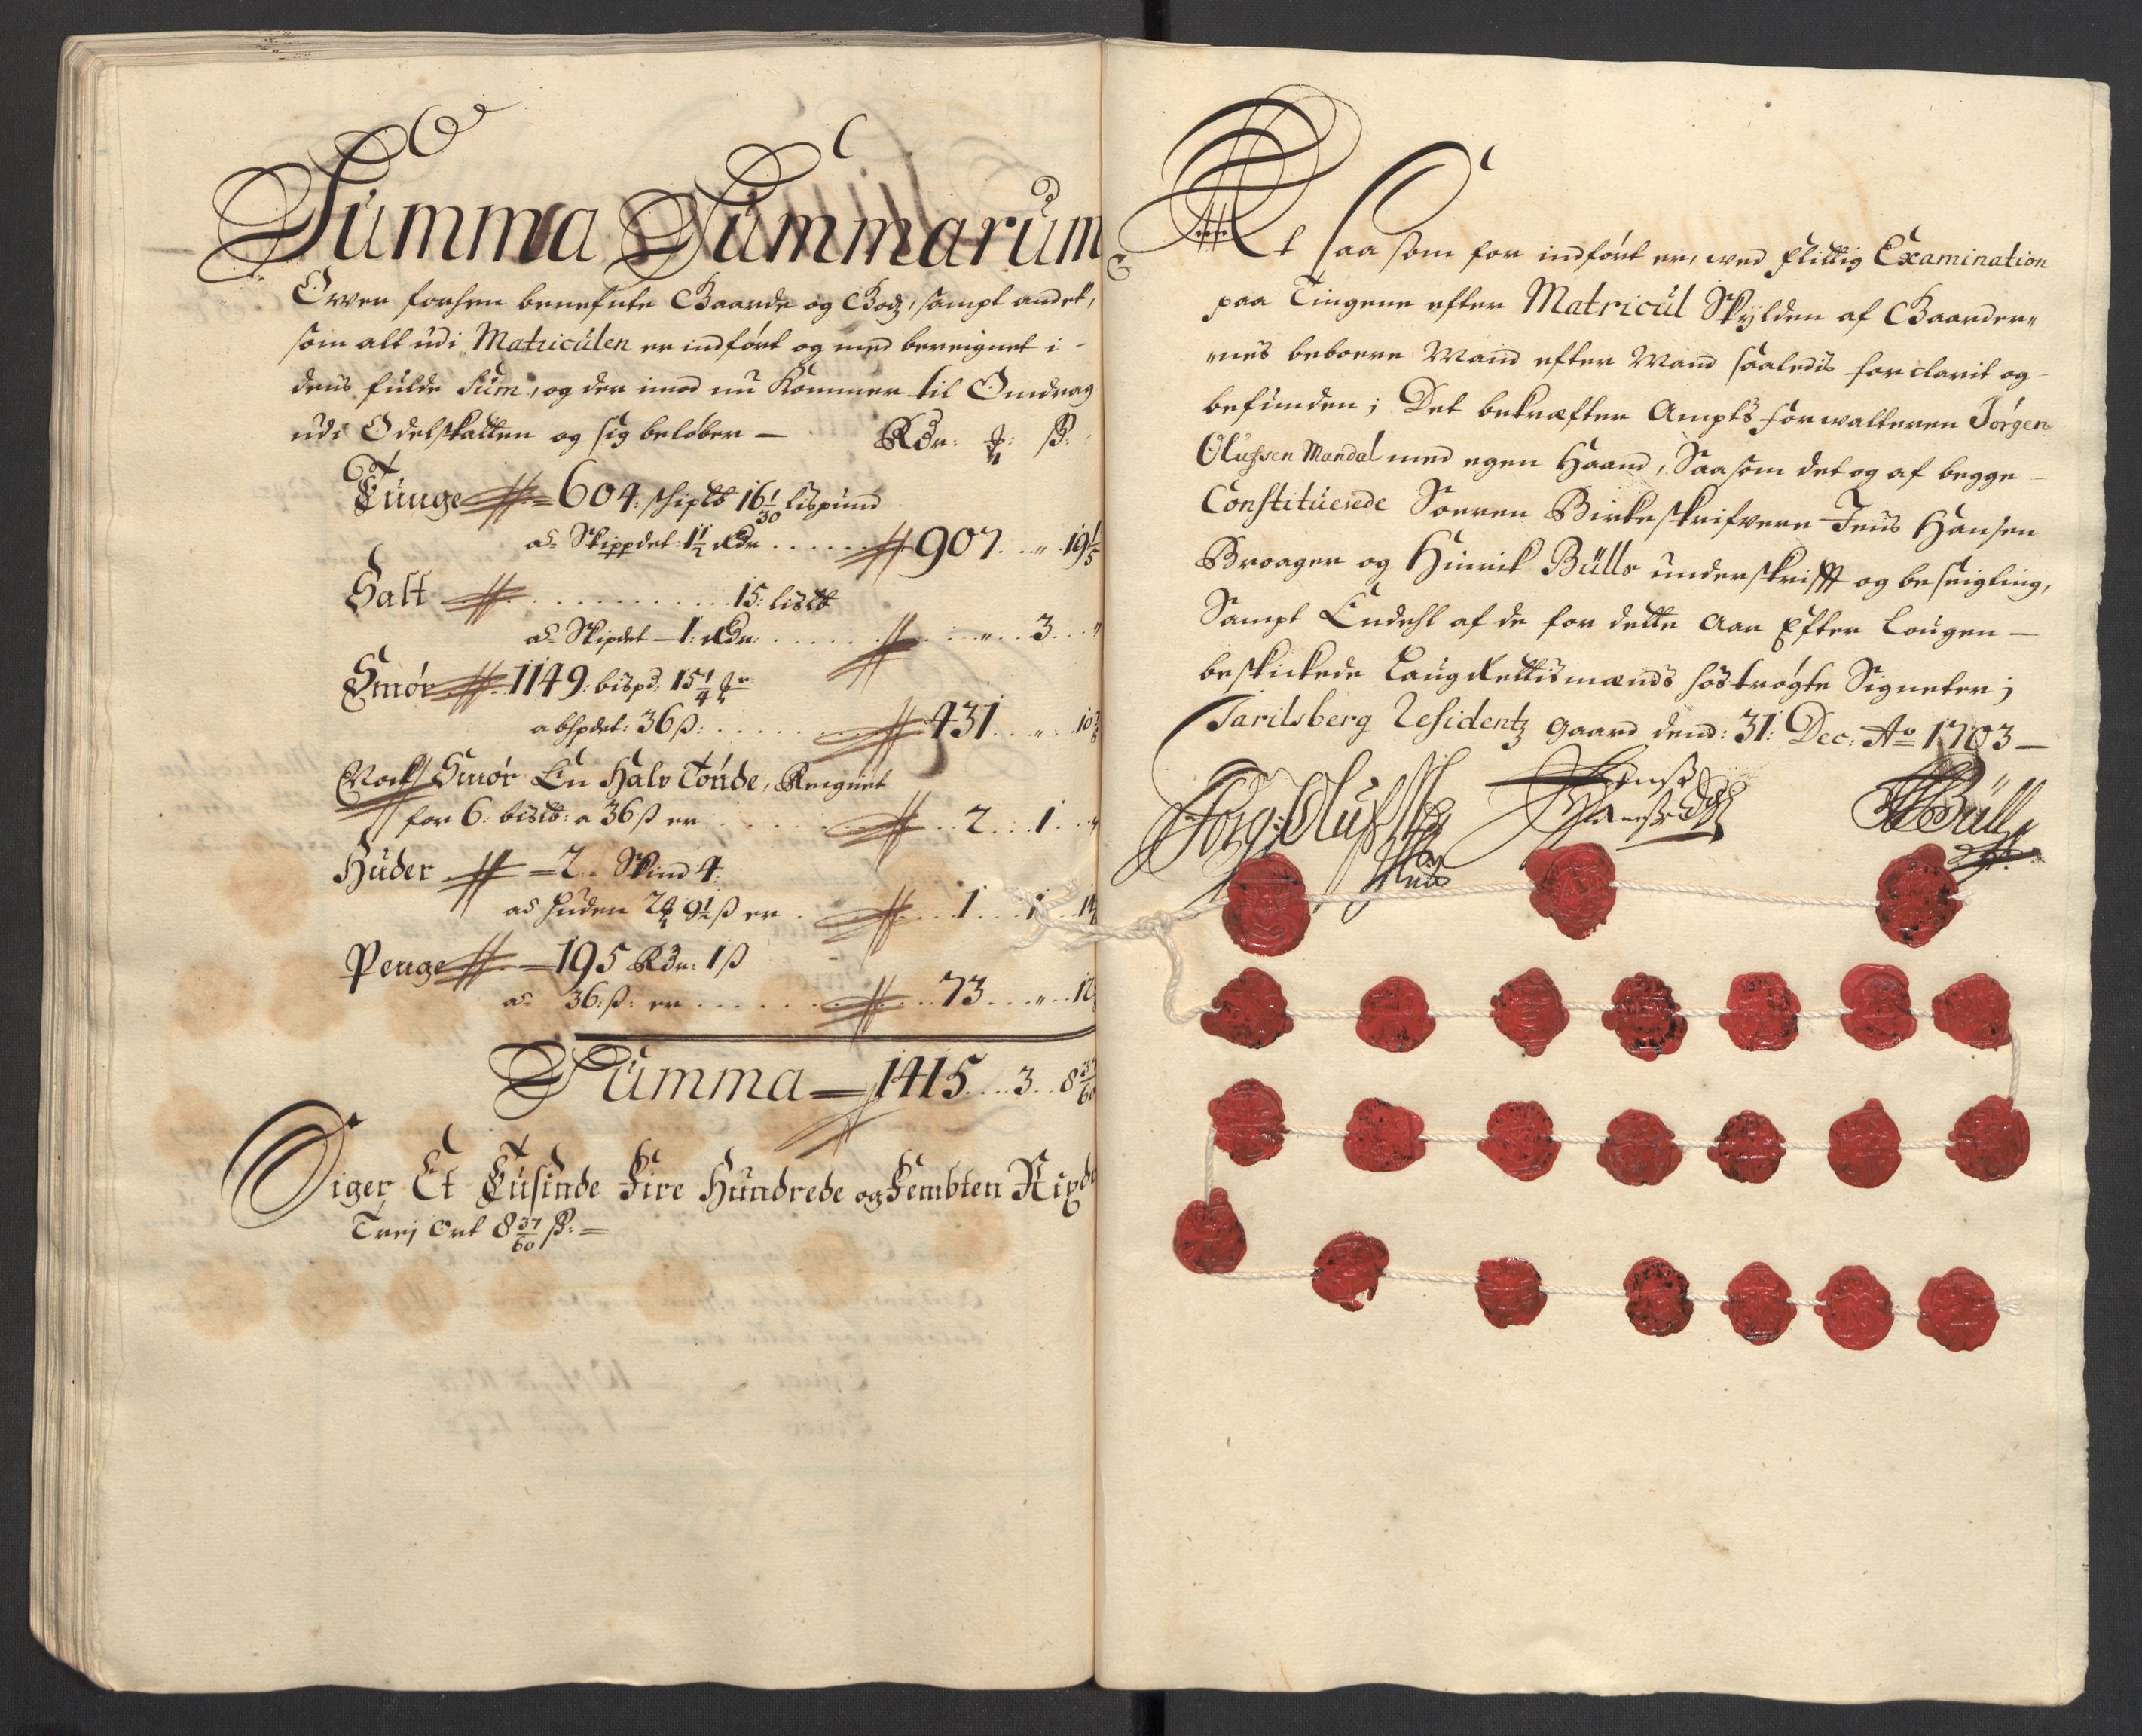 Summa Summarum
Ofver forhen benefnte Gaarde og Godz, sampt andet,
som alt udi Matriculen er indført og med bereignet i
dens fulde Sum, og der imod nu kommer til Omdrag
udi Odelskatten og sig beløber — Rdr: ß:
Tunge 604: schiplb 16 1/30 lispund
ad Skippdet: 1 1/2 Rdr 907 " 19 1/5
Salt 15: lislb
ad Skipdet 1: Rdr " 3 "
Smør 1149: bispd: 15 1/4
a bispdet: 36 ß: 431 "
Noch Smør En Halv Tønde, Reignet
for 6: bislb: a 36 ß er 2 1 "
Huder 2 Skind 4:
ad Huden 9 1/2 ß er 1 1
Penge 195 Rdr: 1 ß
ad 36: ß: er 73 "
Summa 1415 3 8 37/60
Siger Et Tusinde Fire Hundrede og Fembten Rixdr
Trej Ort 8 37/60 ß: =
At saa som for indført er, ved flittig Examination
paa Tingene efter Matricul Skylden af Gaarder„
„nes beboere Mand efter Mand saaledis forclarit og
befunden; Det bekræfter Ampts forwalteren Jørgen
Olufsen Mandal med egen Haand, Saasom det og af begge
Constituerede Soeren Birkeskrifvere Jens Hansen
Broager og Hinrik Bülls underskrifft og beseigling,
Sampt Endehl af de for dette Aar Efter Lougen —
beskickede Laug Rettismænds hostrøgte Signeter;
Jarilsberg Residentz Gaard dend: 31: Dec: Ao 1703 —
Jørg: Olufss Jenss Hanss HBüll